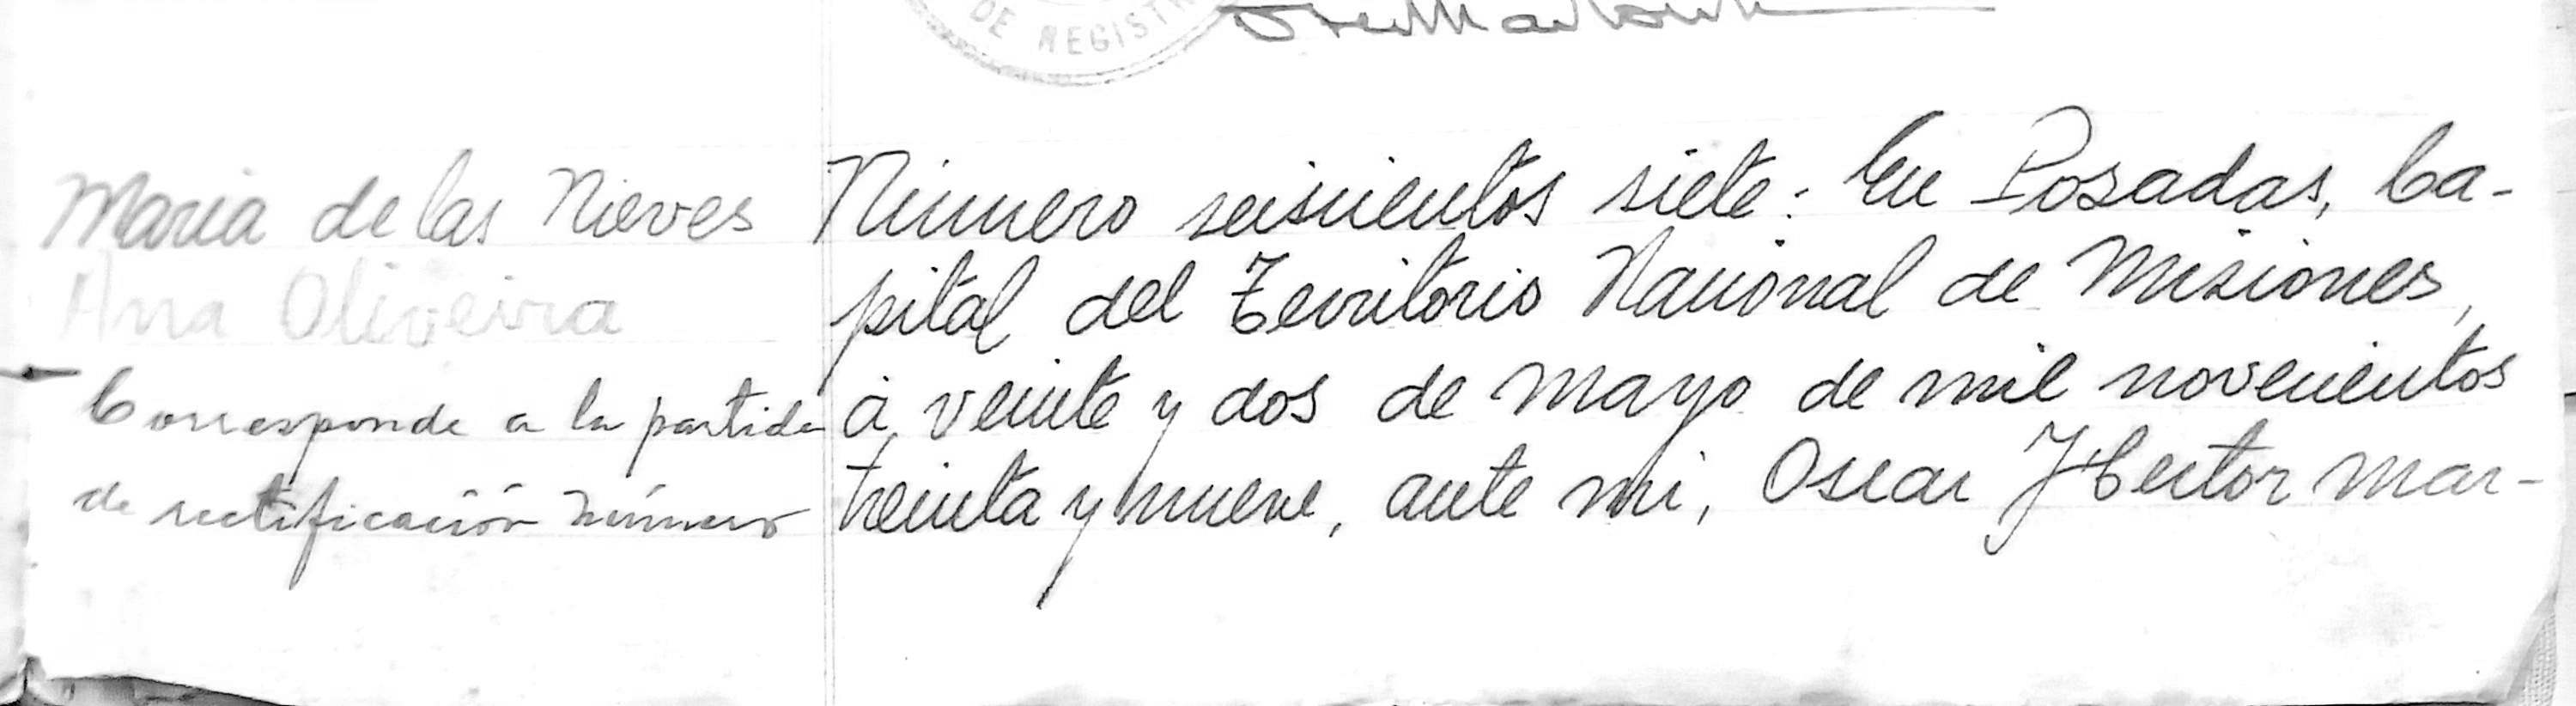 DE REGISTR
Maria de las Nieves
Ana Oliveira
Corresponde a la partida
de rectificación número
Número seiscientos siete: En Posadas, Ca-
pital del Territorio Nacional de Misiones,
á veinte y dos de Mayo de mil novecientos
treinta y nueve, ante mi, Oscar Hector Mar-